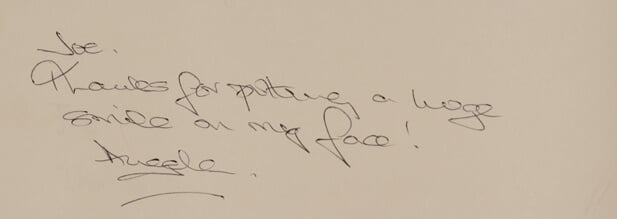 Joe.
Thanks for putting a huge
smile on my face!
Angela.